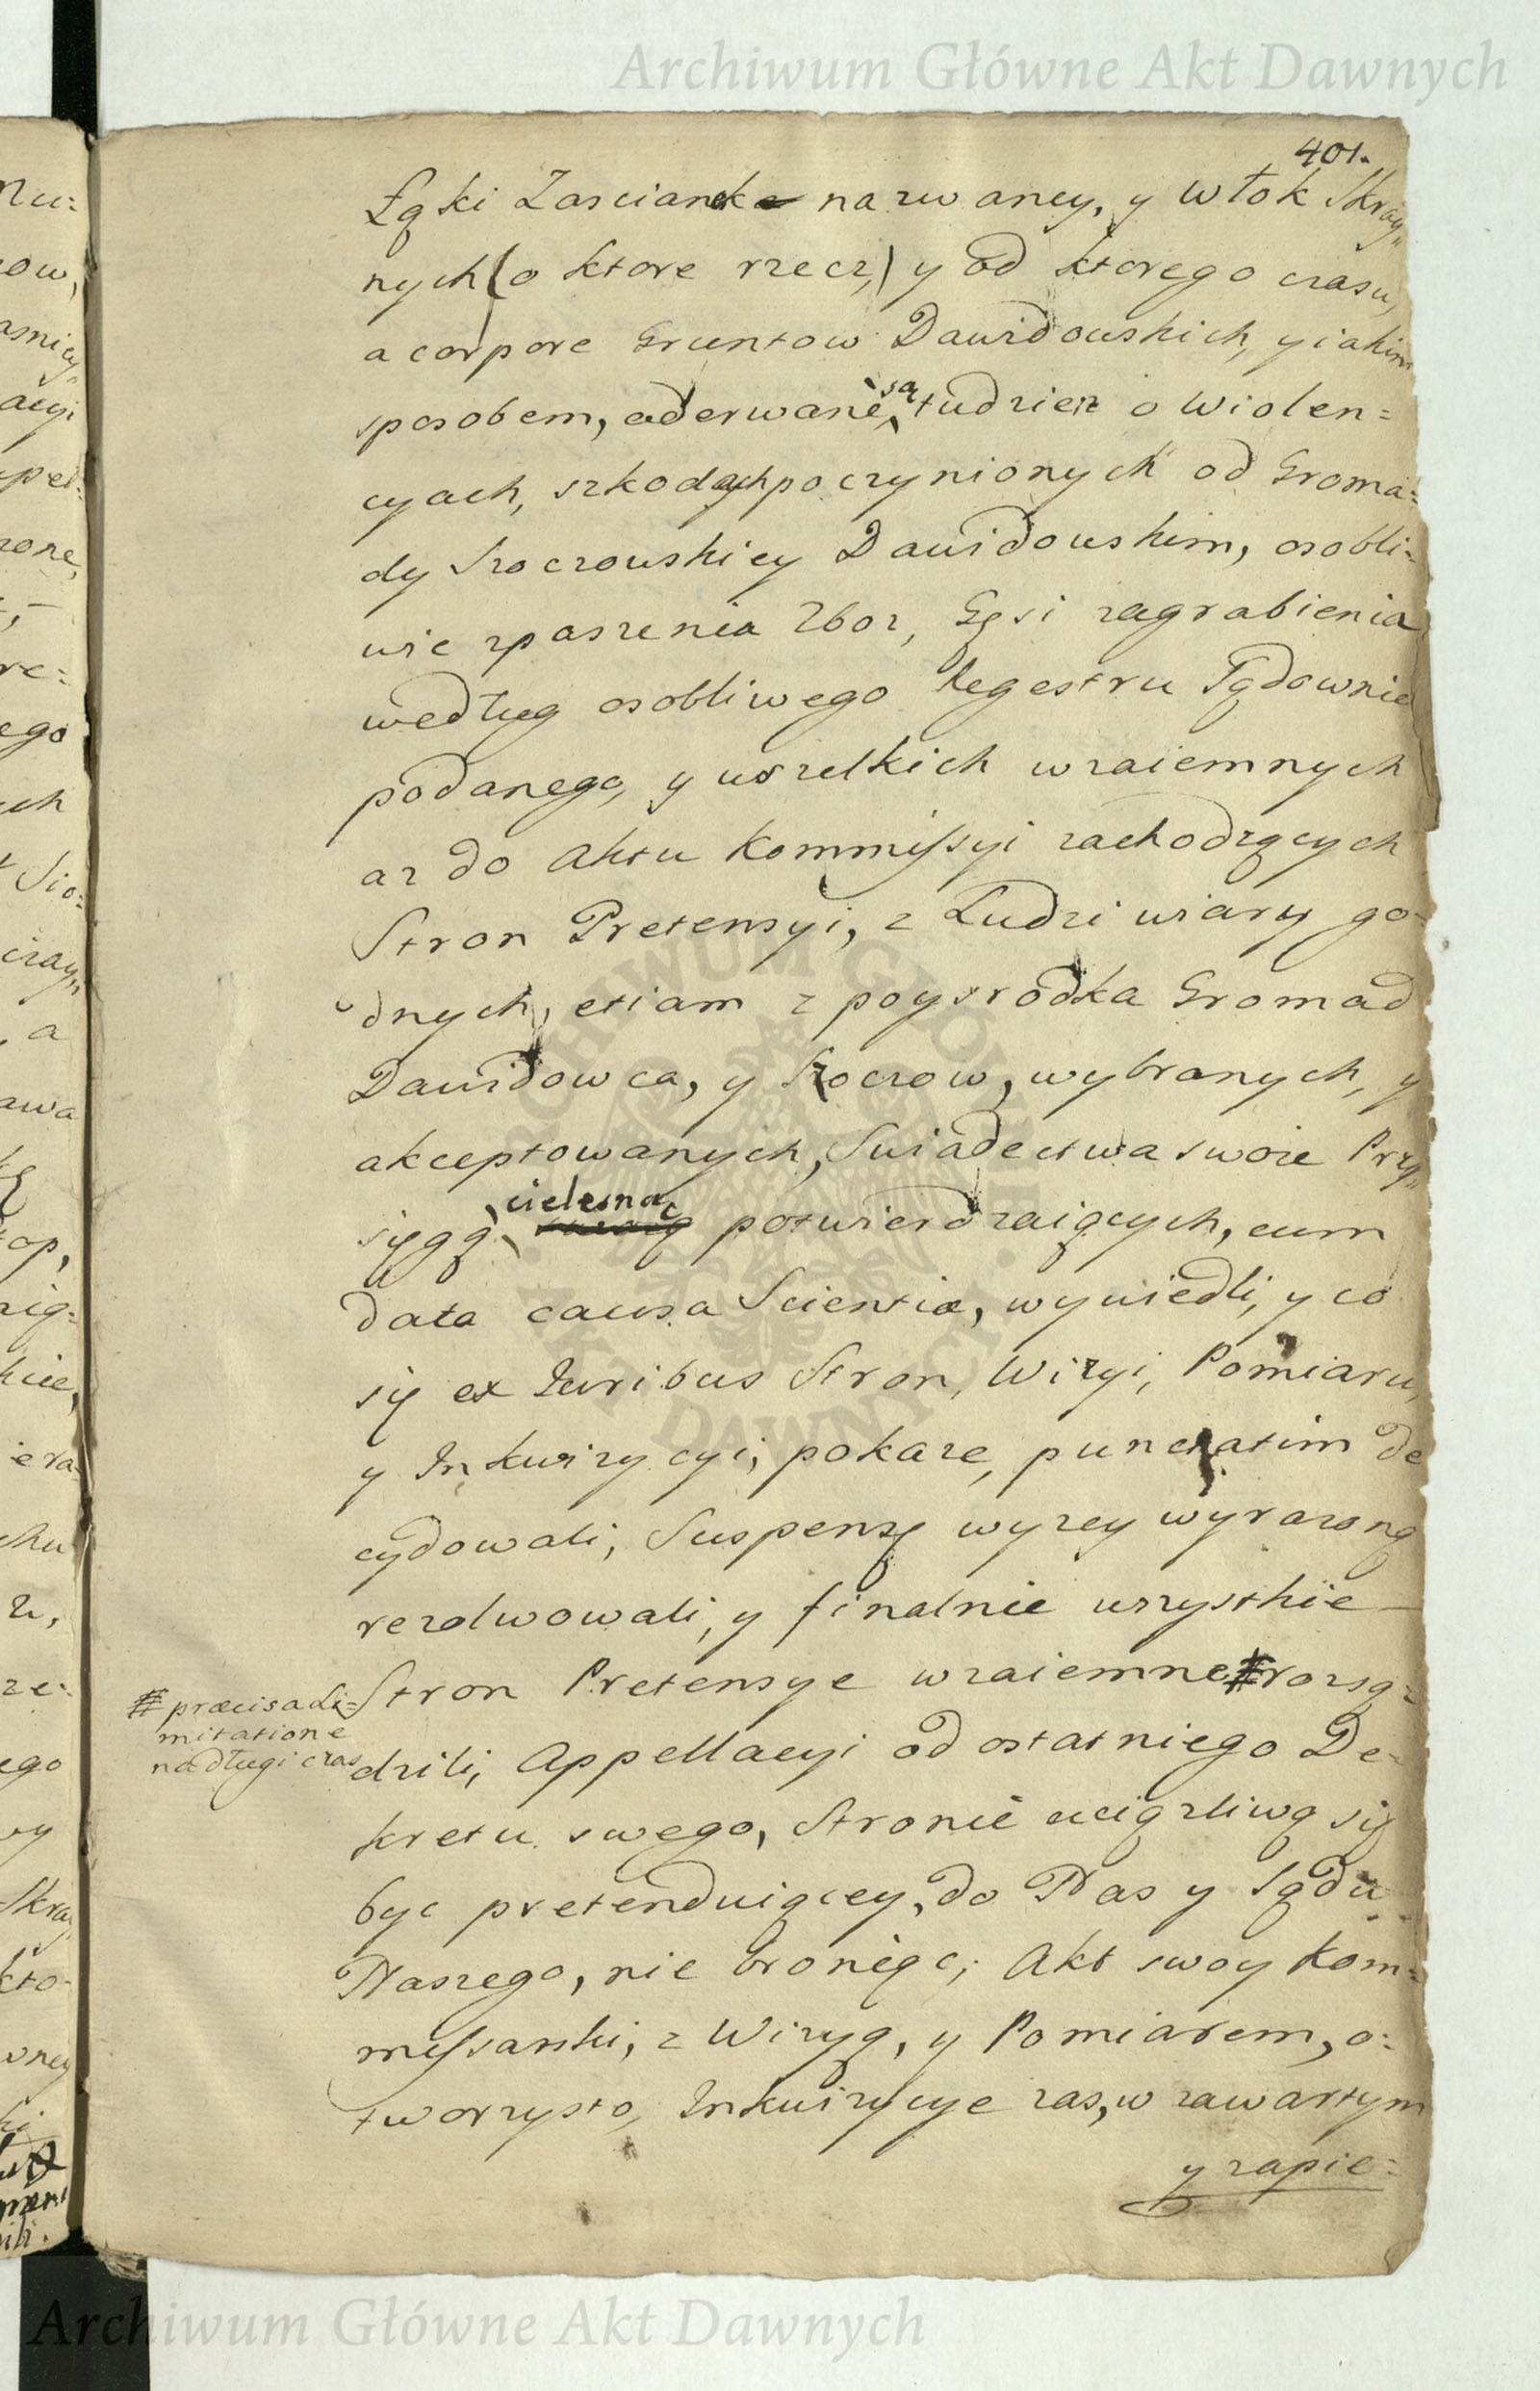 Archiwum Główne Akt Dawnych
401.
Łąki Zascianek nazwaney, y Włok Skray„
nych (o ktore rzecz,) y od ktorego czasu,
a corpore Gruntow Dawidowskich, y iakim
sposobem, oderwane są, tudziez o Wiolen=
cyach, szkodach poczynionych od Groma=
dy Szoczowskiey Dawidowskim, osobli=
wie zpaszenia Zboz, Gęsi zagrabienia
według osobliwego Regestru Sądownie
podanego, y wszelkich wzaiemnych
az do Aktu Kommissyi zachodzących
Stron Pretensyi, z Ludzi wiary go=
dnych, etiam z poysrodka Gromad
Dawidowca, y Szoczow, wybranych, y
akceptowanych, Swiadectwa swoie Przy„
sięgą cielesną potwierdzaiących, cum
data causa Scientiæ, wywiedli, y co
się ex Juribus Stron, Wizyi, Pomiaru,
y Inkwizycyi, pokaze, punctatim de
cydowali, Suspensę wyzey wyrazoną
rezolwowali, y finalnie wszystkie
Stron Pretensye wzaiemne # rozsą=
# præcisa di=
mitatione
na długi czas
dzili, Appellacyi od ostatniego De=
kretu swego, Stronie uciązliwą się
byc pretenduiącey, do Nas y Sądu
Naszego, nie broniąc; Akt swoy Kom=
missarski, z Wizyą, y Pomiarem, o=
tworzysto, Inkwizycye zas, w zawartym
y zapie=
Archiwum Główne Akt Dawnych